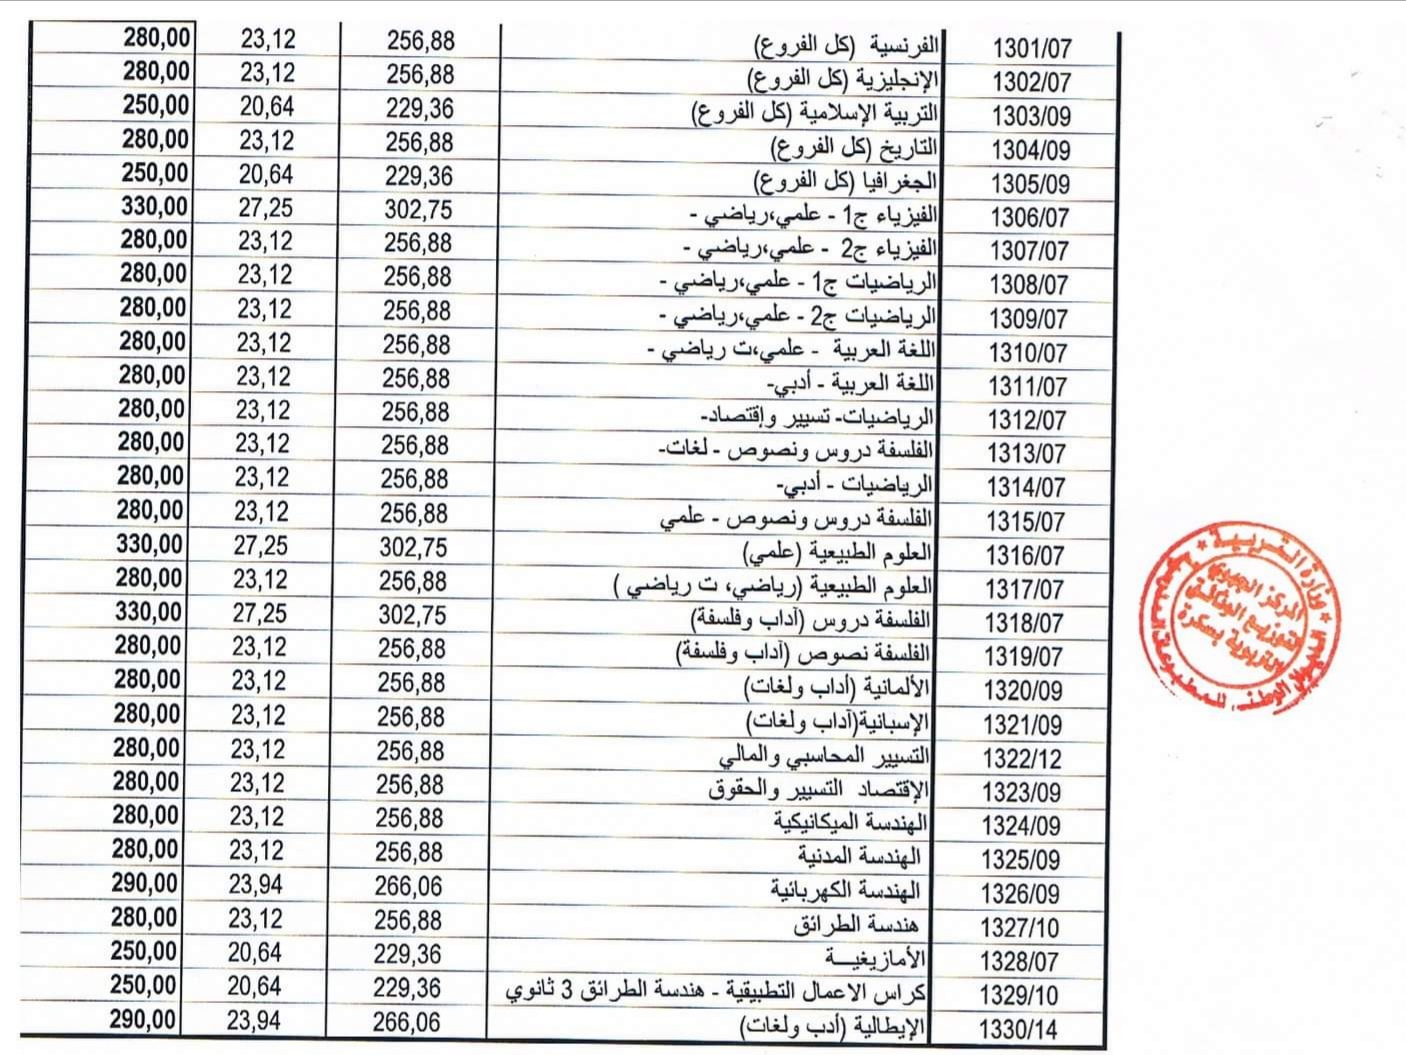 1301/07 الفرنسية (كل الفروع) 256,88 23,12 280,00
1302/07 الإنجليزية (كل الفروع) 256,88 23,12 280,00
1303/09 التربية الإسلامية (كل الفروع) 229,36 20,64 250,00
1304/09 التاريخ (كل الفروع) 256,88 23,12 280,00
1305/09 الجغرافيا (كل الفروع) 229,36 20,64 250,00
1306/07 الفيزياء ج1 - علمي،رياضي - 302,75 27,25 330,00
1307/07 الفيزياء ج2 - علمي،رياضي - 256,88 23,12 280,00
1308/07 الرياضيات ج1 - علمي،رياضي - 256,88 23,12 280,00
1309/07 الرياضيات ج2 - علمي،رياضي - 256,88 23,12 280,00
1310/07 اللغة العربية - علمي،ت رياضي - 256,88 23,12 280,00
1311/07 اللغة العربية - أدبي- 256,88 23,12 280,00
1312/07 الرياضيات- تسيير وإقتصاد- 256,88 23,12 280,00
1313/07 الفلسفة دروس ونصوص - لغات- 256,88 23,12 280,00
1314/07 الرياضيات - أدبي- 256,88 23,12 280,00
1315/07 الفلسفة دروس ونصوص - علمي 256,88 23,12 280,00
1316/07 العلوم الطبيعية (علمي) 302,75 27,25 330,00
1317/07 العلوم الطبيعية (رياضي، ت رياضي ) 256,88 23,12 280,00
1318/07 الفلسفة دروس (آداب وفلسفة) 302,75 27,25 330,00
1319/07 الفلسفة نصوص (آداب وفلسفة) 256,88 23,12 280,00
1320/09 الألمانية (أداب ولغات) 256,88 23,12 280,00
1321/09 الإسبانية(آداب ولغات) 256,88 23,12 280,00
1322/12 التسيير المحاسبي والمالي 256,88 23,12 280,00
1323/09 الإقتصاد التسيير والحقوق 256,88 23,12 280,00
1324/09 الهندسة الميكانيكية 256,88 23,12 280,00
1325/09 الهندسة المدنية 256,88 23,12 280,00
1326/09 الهندسة الكهربائية 266,06 23,94 290,00
1327/10 هندسة الطرائق 256,88 23,12 280,00
1328/07 الأمازيغيـــة 229,36 20,64 250,00
1329/10 كراس الاعمال التطبيقية - هندسة الطرائق 3 ثانوي 229,36 20,64 250,00
1330/14 الإيطالية (أدب ولغات) 266,06 23,94 290,00
وزارة التربية
الديوان الوطني للمطبوعات
المركز الجهوي
لتوزيع الوثائق
التربوية بسكرة